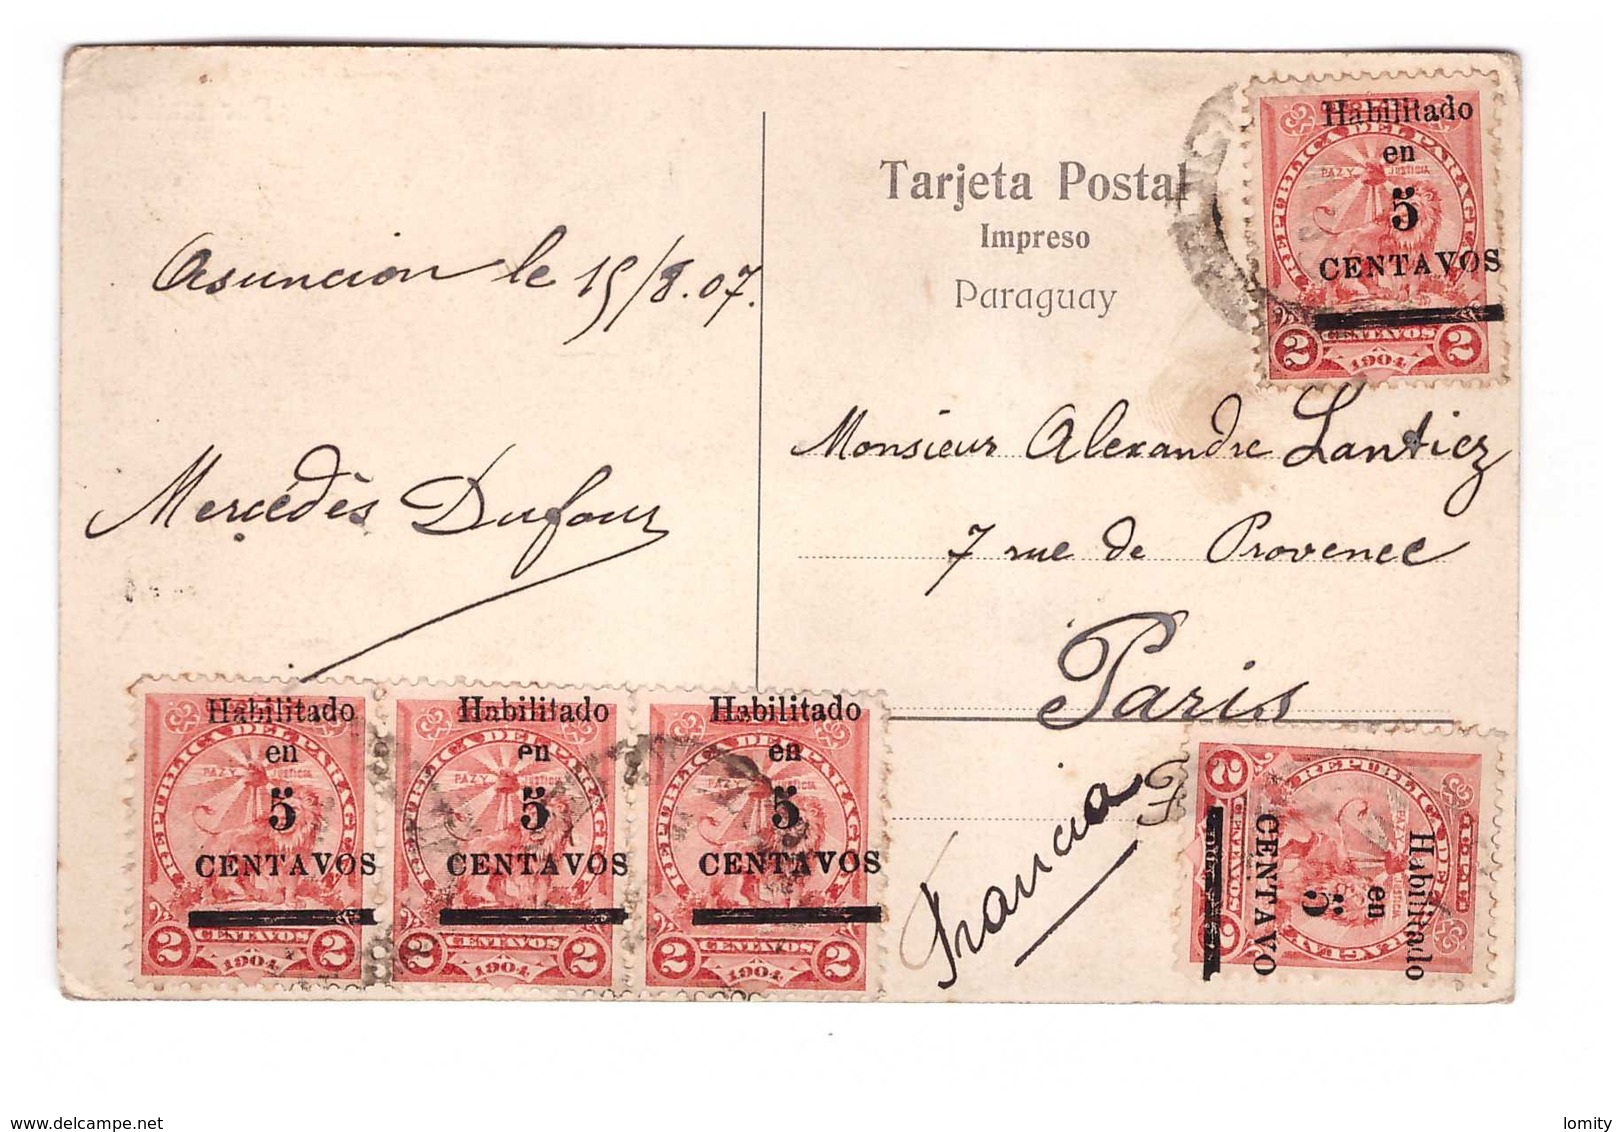 Tarjeta Postal
Impreso
Paraguay
Asuncion le 15/8.07.
Mercédès Dufour
Monsieur Alexandre Lantiez
7 rue de Provence
Paris
Francia
REPUBLICA DEL PARAGUAY
PAZ Y JUSTICIA
Habilitado
en
5
CENTAVOS
2 CENTAVOS 2
1904
REPUBLICA DEL PARAGUAY
PAZ Y JUSTICIA
Habilitado
en
5
CENTAVOS
2 CENTAVOS 2
1904
REPUBLICA DEL PARAGUAY
PAZ Y JUSTICIA
Habilitado
en
5
CENTAVOS
2 CENTAVOS 2
1904
REPUBLICA DEL PARAGUAY
PAZ Y JUSTICIA
Habilitado
en
5
CENTAVOS
2 CENTAVOS 2
1904
REPUBLICA DEL PARAGUAY
Habilitado
en
5
CENTAVO
2 CENTAVOS 2
www.delcampe.net
lomity